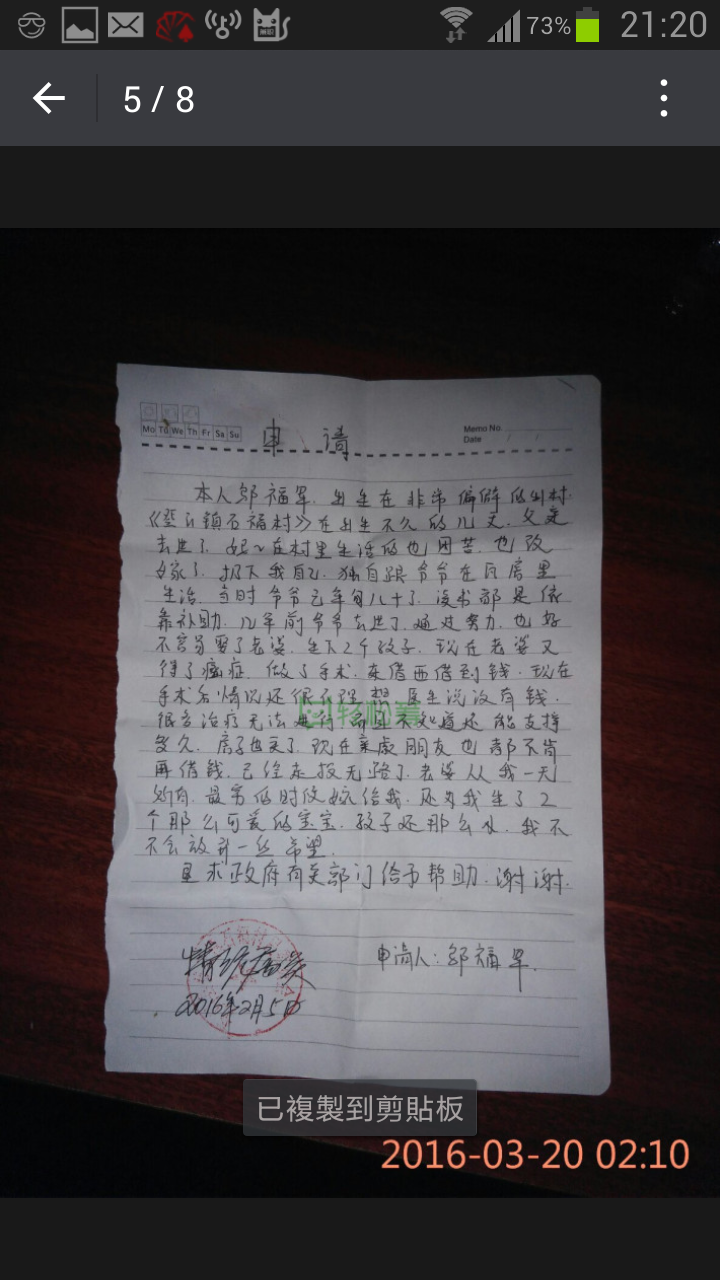 73% 21:20
5 / 8
Mo Tu We Th Fr Sa Su
Memo No.
Date / /
申 请
本人邬福军. 出生在非常偏僻的山村.
《登云镇石福村》在出生不久的几天. 父亲
去世了. 妈妈在村里生活的也困苦. 也改
嫁了. 扔下我自己. 独自跟爷爷在瓦房里
生活. 当时爷爷已年旬八十了. 没书都是依
靠补助. 几年前爷爷去世了. 通过努力. 也好
不容易娶了老婆. 生下2个孩子. 现在老婆又
得了癌症. 做了手术. 东借西借到钱. 现在
手术后情况还很不理想 医生说没有钱.
轻松筹
很多治疗无法进行 而且不知道还能支持
多久. 房子也卖了. 现在亲戚朋友也都不肯
再借钱. 已经走投无路了. 老婆从我一天
所有. 最穷的时候嫁给我. 还为我生了2
个那么可爱的宝宝. 孩子还那么小. 我不
不会放弃一丝希望.
恳求政府有关部门给予帮助. 谢谢.
申请人: 邬福军.
情况属实
2016年2月5日
已複製到剪貼板
2016-03-20 02:10